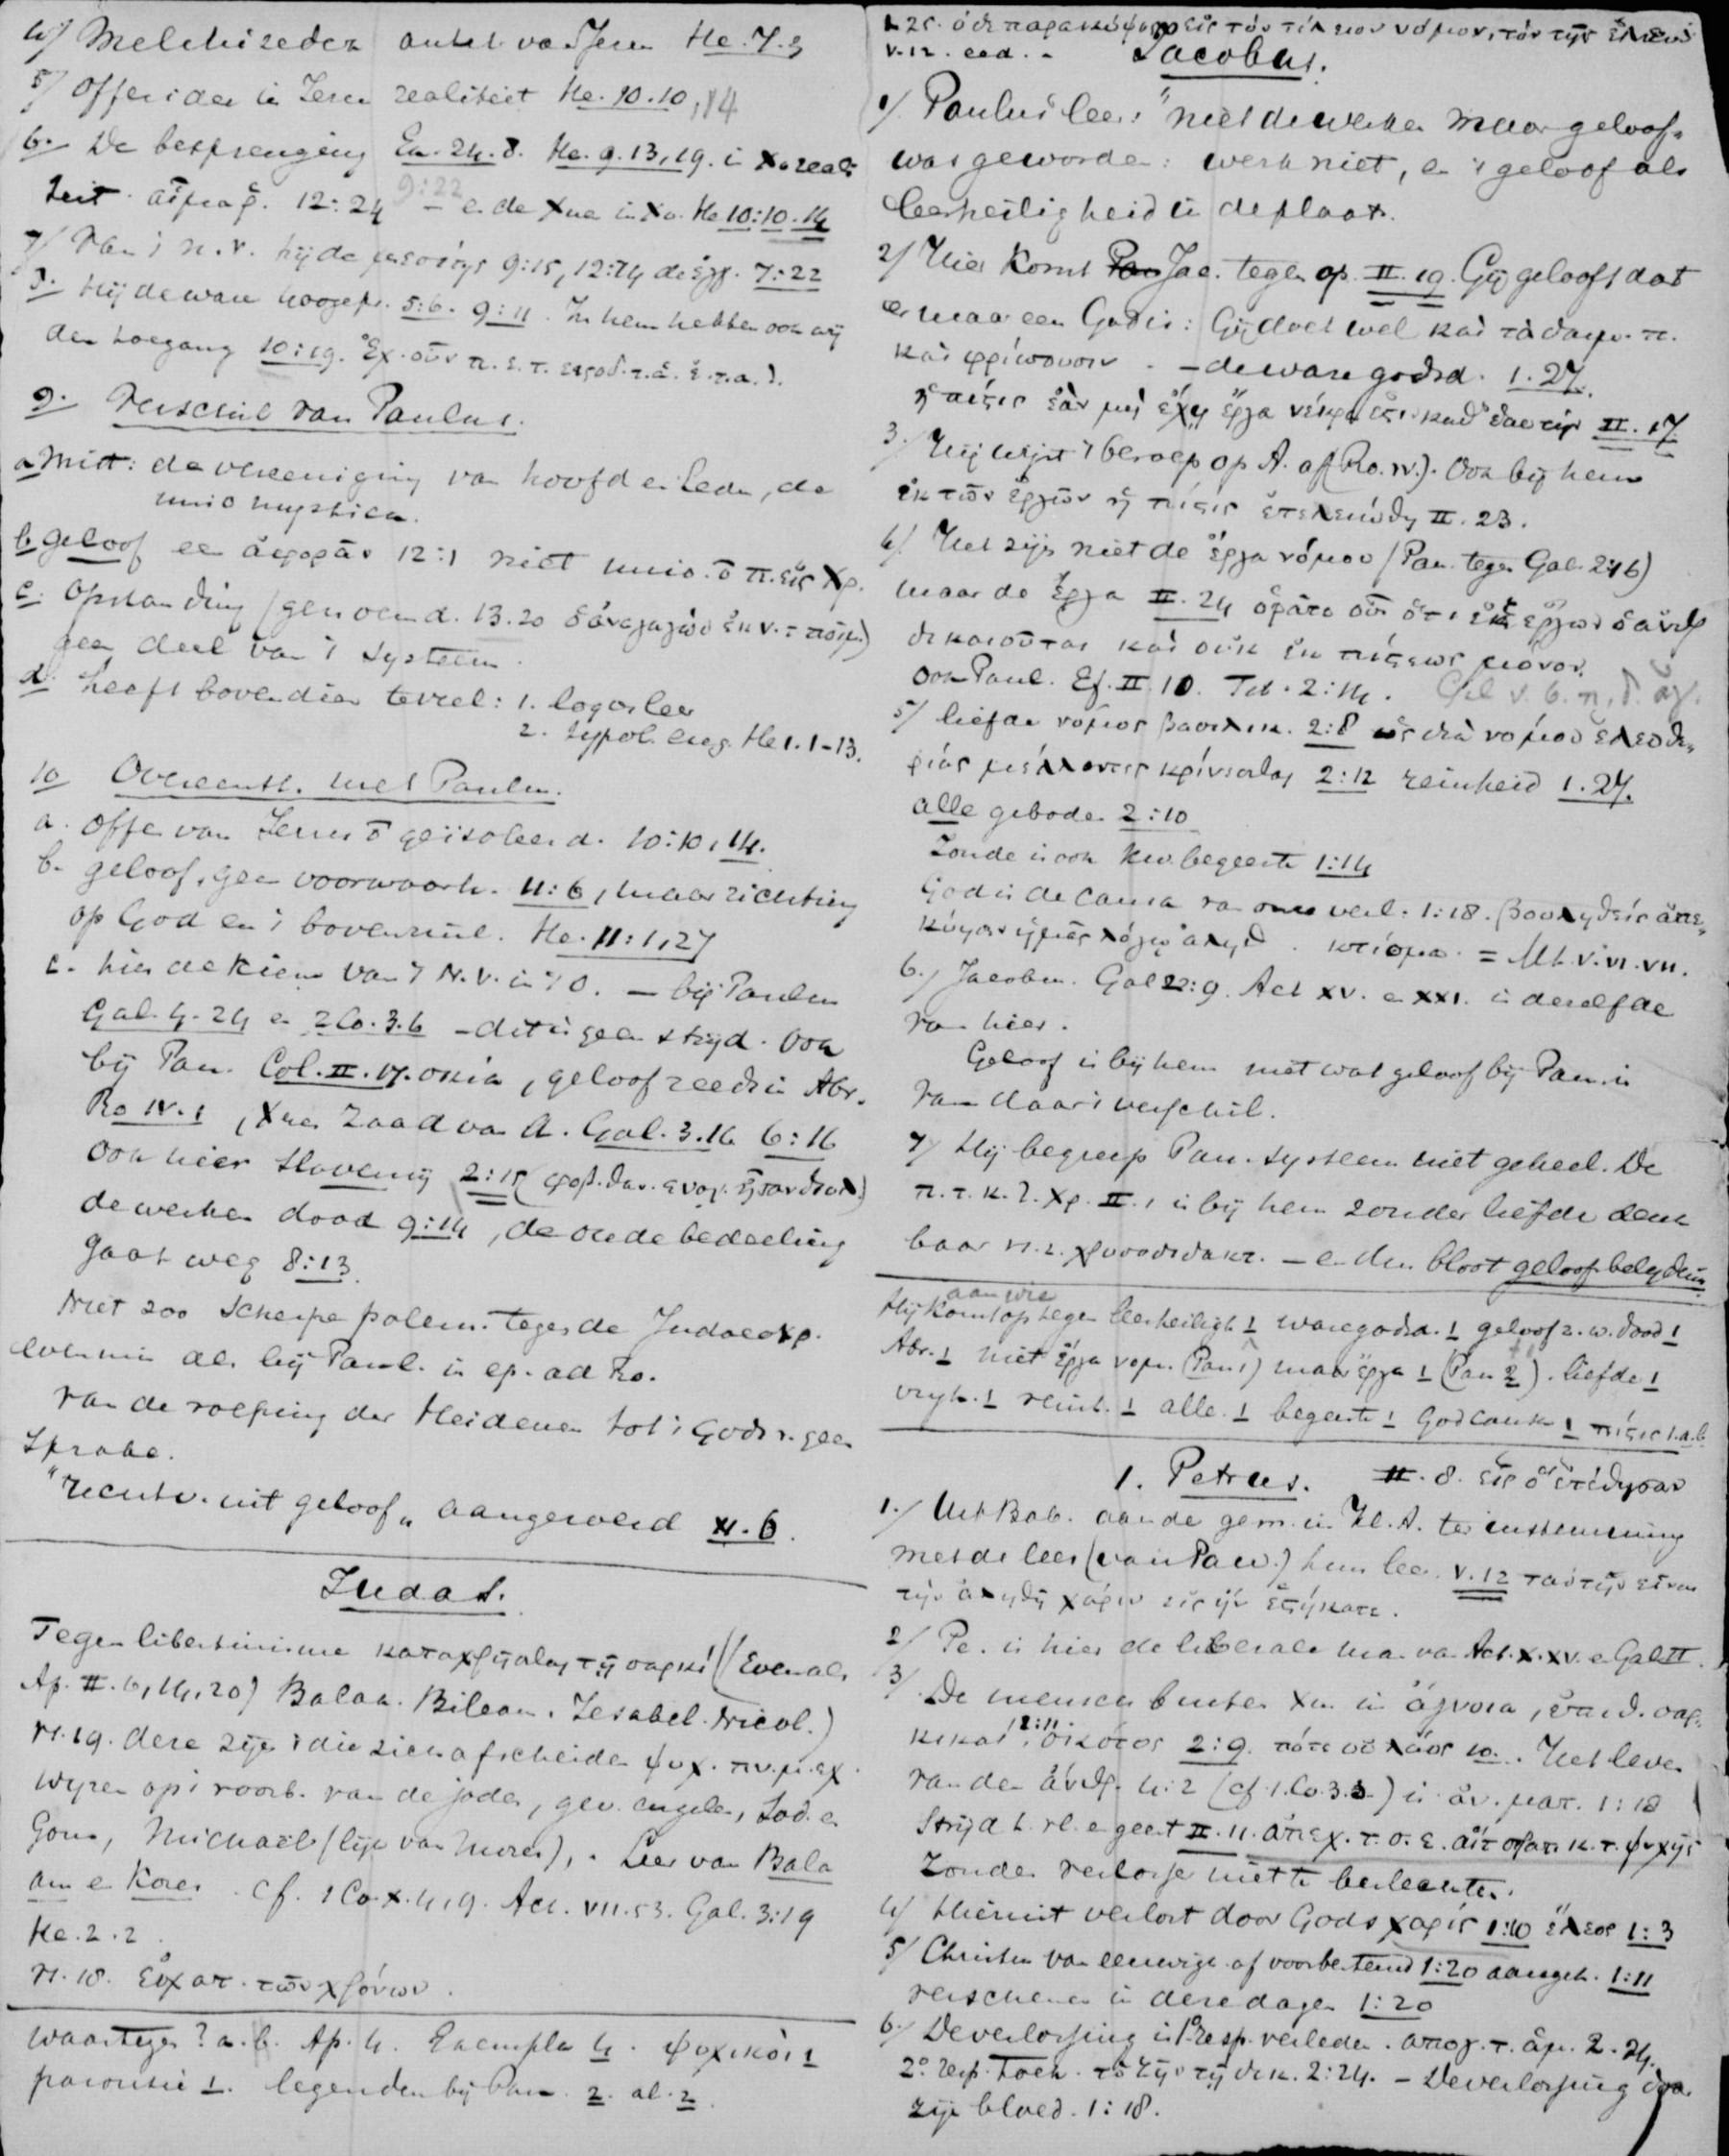 4/ Melchizedek antit. van Jezus He. 7.3
5/ Offeridee in Jezus realiteit He. 10.10, 14
6. De besprenging Ex. 24.8. He. 9.13,19. in X. reali-
teit. 12:24 9:22 – en de Xnen in X. He 10:10.14
7/ Van 't N.V. hij de μεσίτης 9:15, 12:24 de ἔγγ. 7:22
8. Hij de ware hoogepr. 5:6. 9:11. In hem hebben ook wij
den toegang 10:19. Ἐχ. οὖν π. ε. τ. εισοδ. τ. ἁ. ἐ. τ. α. Ἰ.
9. Verschil van Paulus.
a mist: de vereeniging van hoofd en leden, de
unio mystica.
b geloof een ἀφορᾶν 12:1 niet unio. π. εἰς Χρ.
c. opstanding (genoemd. 13.20 ὁ ἀναγαγὼν ἐκ ν. τ. ποιμ.)
geen deel van 't systeem.
d. heeft bovendien teveel: 1. logosleer
2. typol. exeg. He 1.1-13.
10 Overeenst. met Paulus.
a. offer van Jezus geïsoleerd. 10:10, 14.
b. geloof, geen voorwaarde. 11:6, maar richting
op God en 't bovenzinl. He. 11:1,27
c. hier de kiem van 't N.V. in 't O. – bij Paulus
Gal. 4.24 en 2 Co. 3.6 – dit is geen strijd. Ook
bij Pau. Col. II. 17. σκια, geloof reeds in Abr.
Ro IV.1, Xnen zaad van A. Gal. 3.16 6:16
Ook hier slavernij 2:15 (φοβ. θαν. ενοχ. ἦσαν δουλ.)
de werken dood 9:14, de oude bedeeling
gaat weg 8:13.
Niet zoo scherpe polem. tegen de Judaeoxp.
als bij Paul. in ep. ad Ro.
Van de roeping der Heidenen tot 't Godsr. geen
sprake.
"rechtv. uit geloof" aangeroerd XI. 6.
Judas.
Tegen libertinisme τῇ σαρκί (Evenals
Ap. II. 6, 14, 20) Balak. Bileam. Jezabel. Nicol.)
vs. 19. deze zijn 't die zich afscheiden ψυχ. πν. μ. εχ.
wijzen op 't voorb. van de joden, gev. engelen, Sod. en
Gom., Michaël (lijk van Mozes), . Leer van Bala
am en Korach. cf. 1 Co. X. 4, 9. Act. VII. 53. Gal. 3:19
He. 2.2.
vs. 18. ἐσχατ. τῶν χρόνων.
Waartegen? a. b. Ap. 4. Exempla 4. ψυχικοὶ 1
parousie 1. legenden bij Pau. 2. al. 2.
1.25. ὁ δὲ παρακύψας εἰς τὸν τέλειον νόμον, τὸν τῆς ἐλευθ.
v. 12. eed. – Jacobus.
1/ Paulus' leer: "niet de werken maar geloof"
was geworden: werk niet, en 't geloof als
leerheiligheid in de plaats.
2/ Hier komt Jac. tegen op. II. 19. Gij gelooft dat
er maar een God is: Gij doet wel καὶ τὰ δαιμ. π.
καὶ φρίσσουσιν. – de ware godsd. 1.27.
ἡ πίστις ἐὰν μὴ ἔχῃ ἔργα νέκρα ἐστιν καθ' ἑαυτήν II. 17
3. Hij wijst 't beroep op A. af (Ro. IV.). Ook bij hem
ἐκ τῶν ἔργων ἡ πίστις ἐτελειώθη II. 23.
4/ Het zijn niet de ἔργα νόμου (Pau. tegen Gal. 2:16)
maar de ἔργα II. 24 ὁρᾶτε οὖν ὅτι ἐξ ἔργων ὁ ἄνθρ
δικαιοῦται καὶ οὐκ ἐκ πίστεως μόνον.
Ook Paul. Ef. II 10. Tit. 2:14. Gal v. 6. π. δ. ἀγ.
5/ liefde νόμος βασιλικ. 2:8 ὡς διὰ νομοῦ ελευθε-
ρίας μελλοντες κρίνεσθαι 2:12 reinheid 1.27.
alle geboden 2:10
Zonde is ook kw. begeerte 1:14
God is de causa van onze verl.: 1:18. βουληθείς ἀπε-
κύησεν ἡμᾶς λόγῳ ἀληθ. κτίσμα. = Mt. V. VI. VII.
6./ Jacobus. Gal 2:9. Act XV. en XXI. is dezelfde
van hier.
Geloof is bij hem niet wat geloof bij Pau. is
van daar 't verschil.
7/ Hij begreep Pau. systeem niet geheel. De
π. τ. κ. Ἰ. Χρ. II. 1 is bij hem zonder liefde denk
baar vs. 2. χρυσοδακτ. – en dus bloot geloofsbelijdenis
aan wie
Hij komt op tegen leerheiligh. 1 ware godsd. 1 geloof z. w. dood 1
Abr. 1 niet ἔργα νομ. (Pau 1) maar ἔργα 1 (Pau 2). liefde 1
vrijh. 1 reinh. 1 alle. 1 begeerte 1 God causa 1 πίστις 1. a. b
1. Petrus. II. 8. εἰς ὃ ἐτέθησαν
1./ Uit Bab. aan de gem. in Kl. A. ter instemming
met de leer (van Pau.) hun leer. V. 12 ταύτην εἶναι
τὴν ἀληθῆ χάριν εἰς ἣν ἑστήκατε.
2/ Pe. is hier de liberale man van Act. X. XV. en Gal II.
3/ De mensch buiten Xus in ἄγνοια, ἐπιθ. σαρ-
κικαί 2:11, σκότος 2:9. πότε οὐ λαός 10. Het leven
van den ἄνθρ. 4:2 (cf. 1. Co 3.3) is ἀν. ματ. 1:18
Strijd t. vl. en geest II. 11. ἀπεχ. τ. σ. ε. αἵτ στρατ. κ. τ. ψυχῆς
Zonder verlosser niet te
4/ Hieruit verlost door Gods χαρίς 1:10 ἔλεος 1:3
5/ Christus van eeuwigh. af voorbestemd 1:20 aangek. 1:11
verschenen in deze dagen 1:20
6./ De verlossing is 1° resp. verleden. απογ. τ. ἁμ. 2.24.
2° resp. toek. τῇ δικ. 2:24. – De verlossing door
zijn bloed. 1:18.